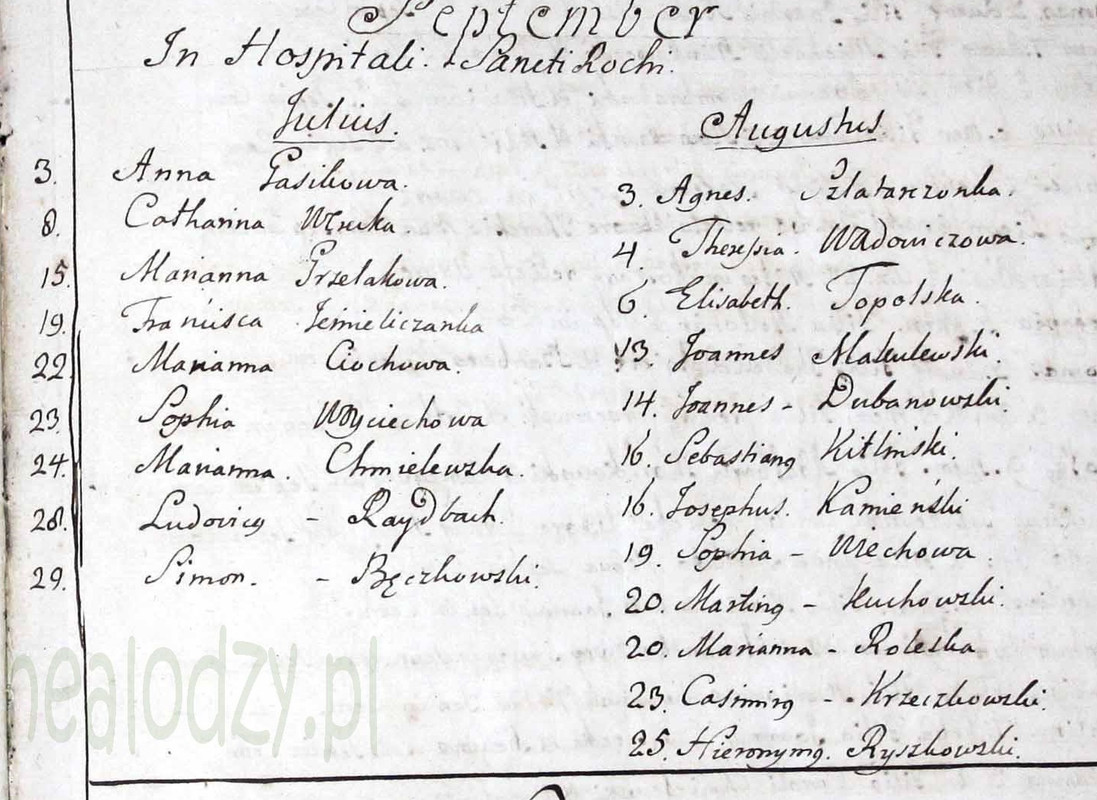 September
In Hospitali Sancti Rochi.
Julius.
3. Anna Gasikowa.
8. Catharina
15. Marianna Grzelakowa.
19. Jemieliczanka
22. Marianna Ciochowa.
23. Sophia Woyciechowa
24. Marianna. Chmielewska.
28. Ludovicꝰ – Raydbach.
29. Simon. – Bęczkowski.
Augustus.
3. Agnes. Szlatarczonka.
4 Theressia Wadowiczowa.
6 Elisabeth. Topolska.
13. Joannes Makulewski.
14. Joannes – Dubanowski
16 Sebastianꝰ Kitlinski.
16. Josephus. Kamieński
19. Sophia –
20. Martinꝰ – Kuchowski.
20. Marianna – Roleska
23. Casimirꝰ – Krzeczkowski.
25. Hieronymꝰ. Ryszkowski.
nealodzy.pl